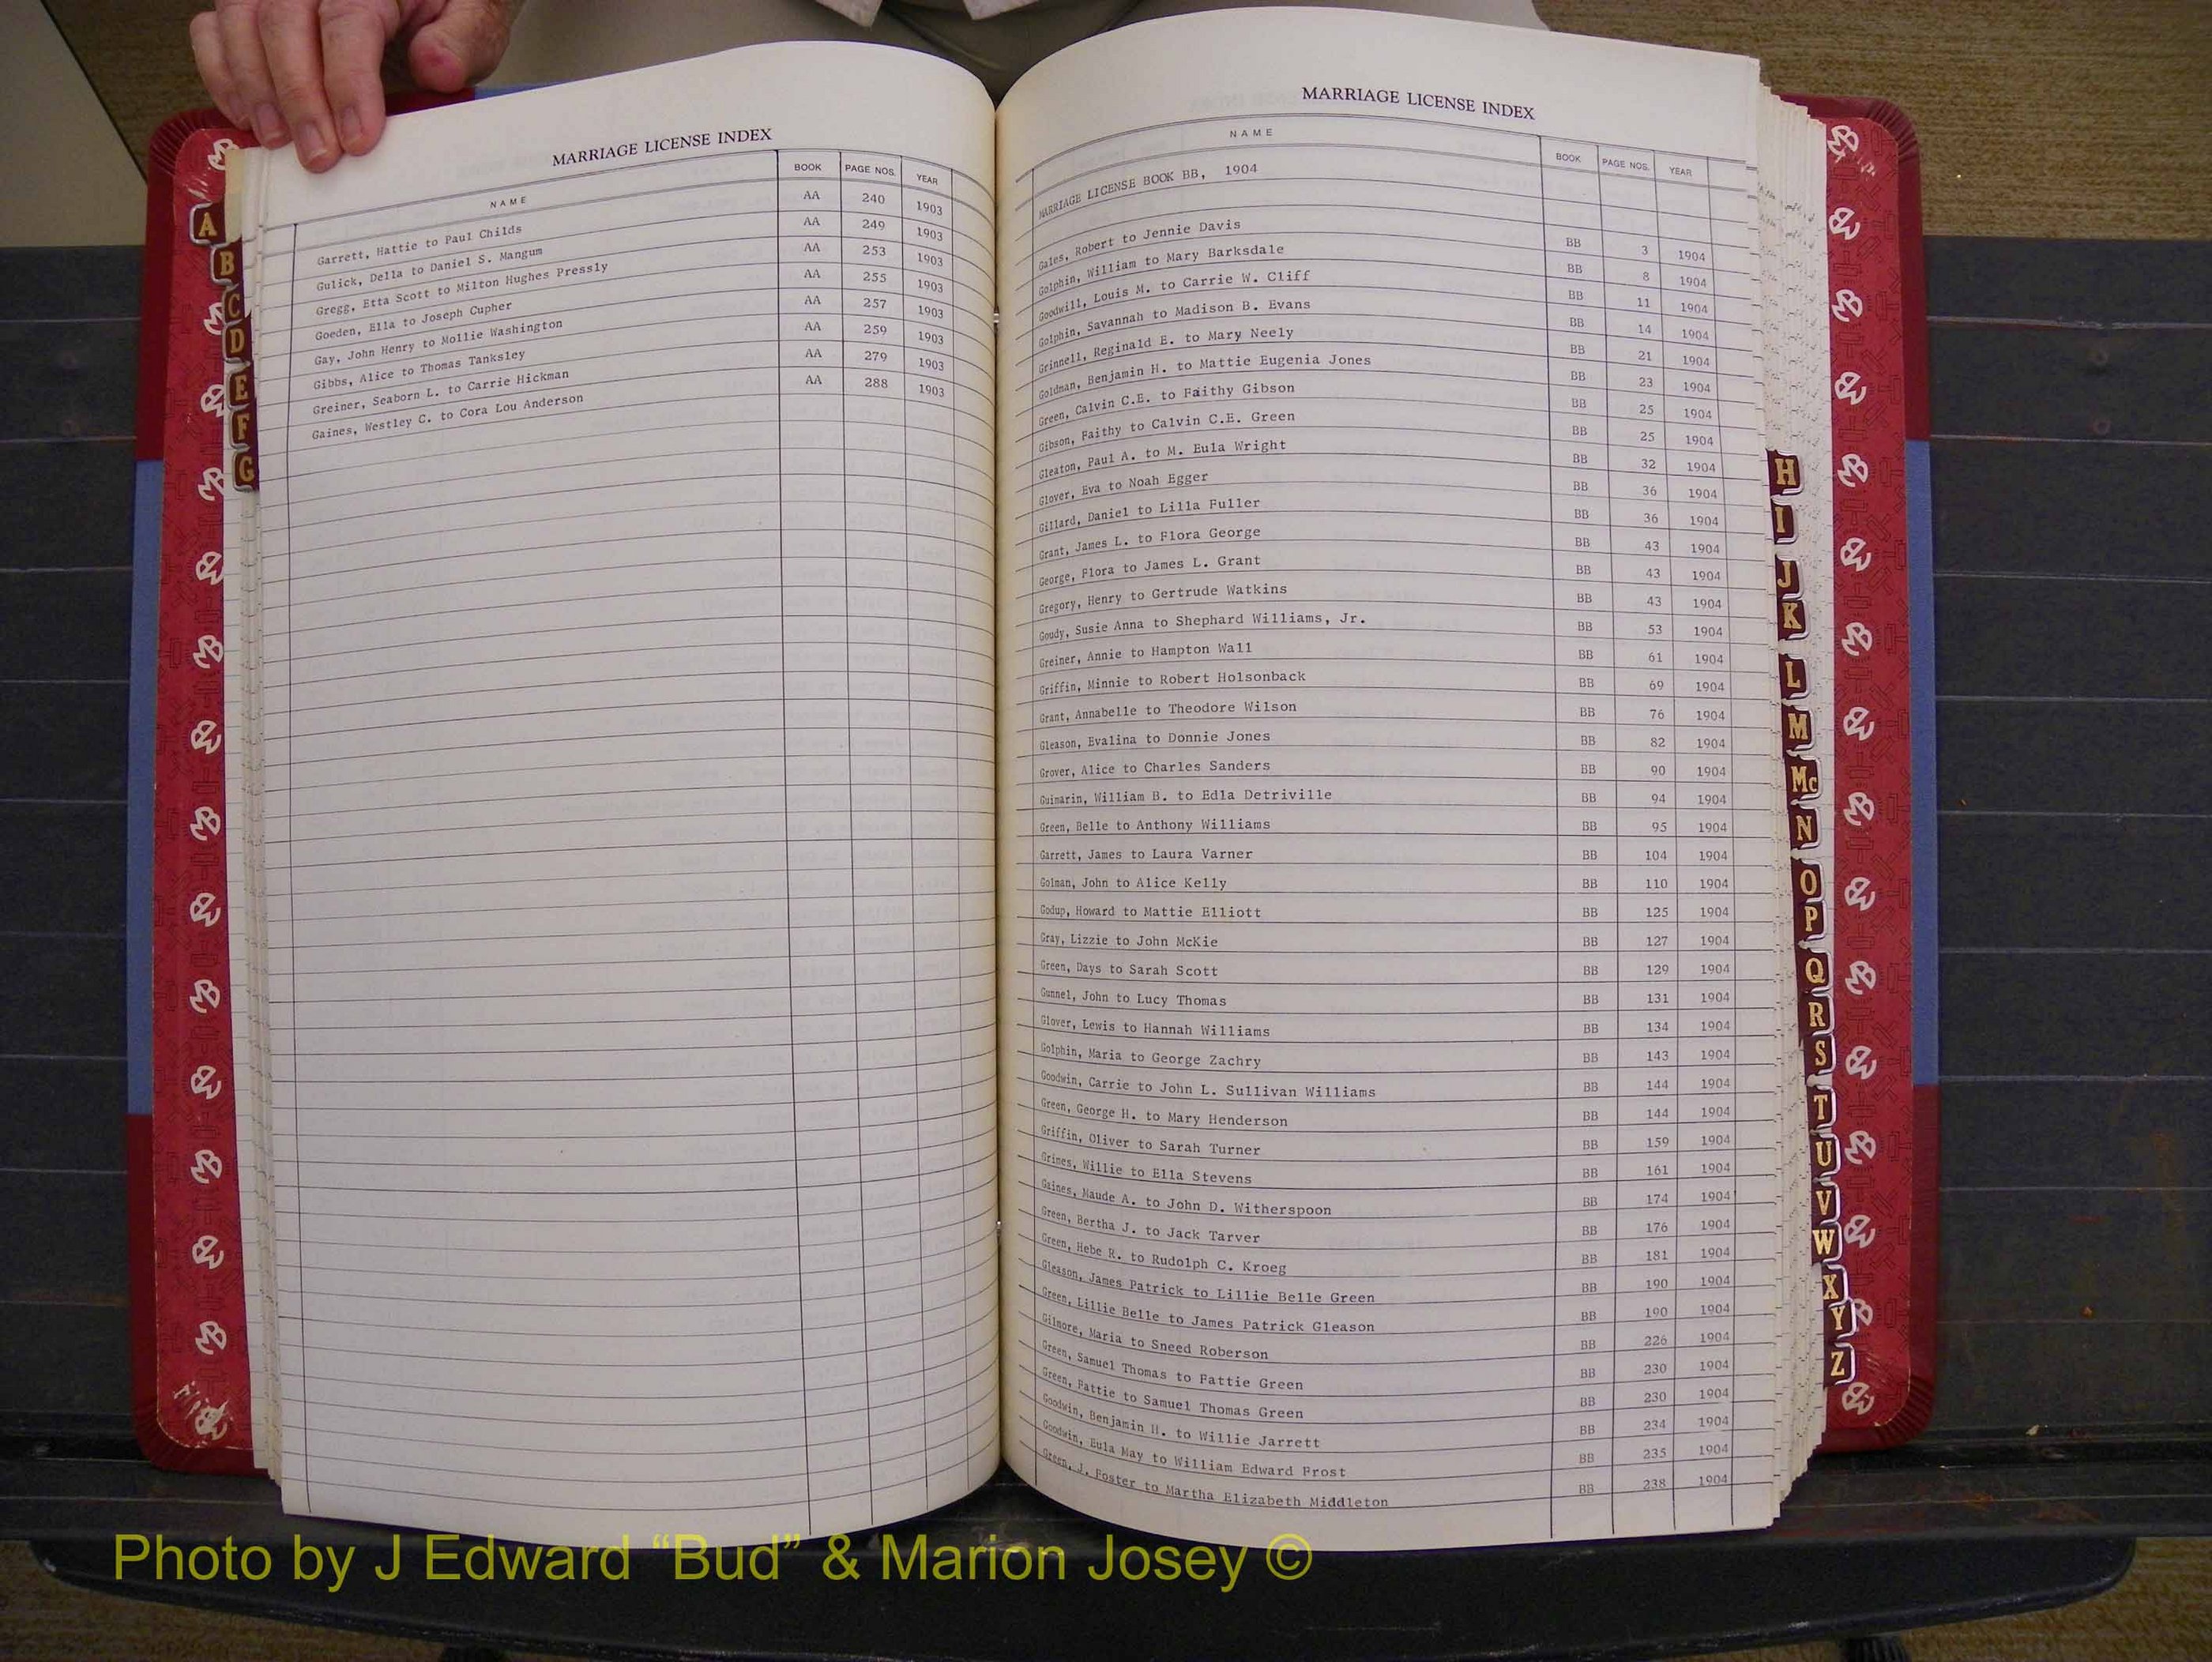 MARRIAGE LICENSE INDEX
NAME BOOK PAGE NOS. YEAR
Garrett, Hattie to Paul Childs AA 240 1903
Gulick, Della to Daniel S. Mangum AA 249 1903
Gregg, Etta Scott to Milton Hughes Pressly AA 253 1903
Goeden, Ella to Joseph Cupher AA 255 1903
Gay, John Henry to Mollie Washington AA 257 1903
Gibbs, Alice to Thomas Tanksley AA 259 1903
Greiner, Seaborn L. to Carrie Hickman AA 279 1903
Gaines, Westley C. to Cora Lou Anderson AA 288 1903
A
B
C
D
E
F
G
MARRIAGE LICENSE INDEX
NAME BOOK PAGE NOS. YEAR
MARRIAGE LICENSE BOOK BB, 1904
Gates, Robert to Jennie Davis BB 3 1904
Golphin, William to Mary Barksdale BB 8 1904
Goodwill, Louis M. to Carrie W. Cliff BB 11 1904
Golphin, Savannah to Madison B. Evans BB 14 1904
Grinnell, Reginald E. to Mary Neely BB 21 1904
Goldman, Benjamin H. to Mattie Eugenia Jones BB 23 1904
Green, Calvin C.E. to Faithy Gibson BB 25 1904
Gibson, Faithy to Calvin C.E. Green BB 25 1904
Gleaton, Paul A. to M. Eula Wright BB 32 1904
Glover, Eva to Noah Egger BB 36 1904
Gillard, Daniel to Lilla Fuller BB 36 1904
Grant, James L. to Flora George BB 43 1904
George, Flora to James L. Grant BB 43 1904
Gregory, Henry to Gertrude Watkins BB 43 1904
Goudy, Susie Anna to Shephard Williams, Jr. BB 53 1904
Greiner, Annie to Hampton Wall BB 61 1904
Griffin, Minnie to Robert Holsonback BB 69 1904
Grant, Annabelle to Theodore Wilson BB 76 1904
Gleason, Evalina to Donnie Jones BB 82 1904
Grover, Alice to Charles Sanders BB 90 1904
Guimarin, William B. to Edla Detriville BB 94 1904
Green, Belle to Anthony Williams BB 95 1904
Garrett, James to Laura Varner BB 104 1904
Golman, John to Alice Kelly BB 110 1904
Godup, Howard to Mattie Elliott BB 125 1904
Gray, Lizzie to John McKie BB 127 1904
Green, Days to Sarah Scott BB 129 1904
Gunnel, John to Lucy Thomas BB 131 1904
Glover, Lewis to Hannah Williams BB 134 1904
Golphin, Maria to George Zachry BB 143 1904
Goodwin, Carrie to John L. Sullivan Williams BB 144 1904
Green, George H. to Mary Henderson BB 144 1904
Griffin, Oliver to Sarah Turner BB 159 1904
Grines, Willie to Ella Stevens BB 161 1904
Gaines, Maude A. to John D. Witherspoon BB 174 1904
Green, Bertha J. to Jack Tarver BB 176 1904
Green, Hebe R. to Rudolph C. Kroeg BB 181 1904
Gleason, James Patrick to Lillie Belle Green BB 190 1904
Green, Lillie Belle to James Patrick Gleason BB 190 1904
Gilmore, Maria to Sneed Roberson BB 226 1904
Green, Samuel Thomas to Fattie Green BB 230 1904
Green, Fattie to Samuel Thomas Green BB 230 1904
Goodwin, Benjamin H. to Willie Jarrett BB 234 1904
Goodwin, Eula May to William Edward Frost BB 235 1904
Green, J. Foster to Martha Elizabeth Middleton BB 238 1904
H
I
J
K
L
M
Mc
N
O
P
Q
R
S
T
U
V
W
X
Y
Z
Photo by J Edward “Bud” & Marion Josey ©